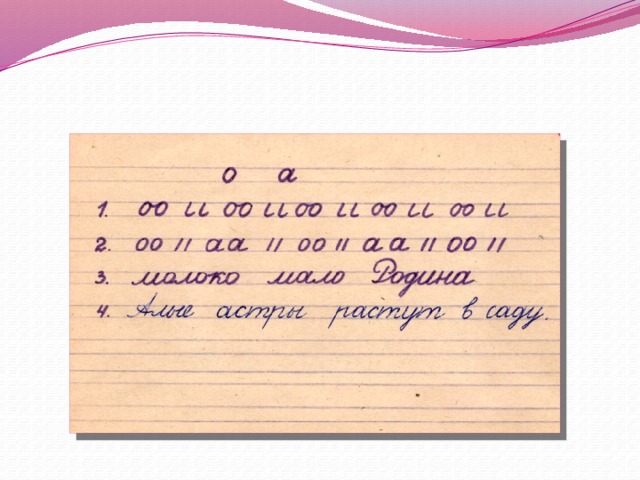 о а
1. оо ιι оо ιι оо ιι оо ιι оо ιι
2. оо ıı аа ıı оо ıı аа ıı оо ıı
3. молоко мало Родина
4. Алые астры растут в саду.